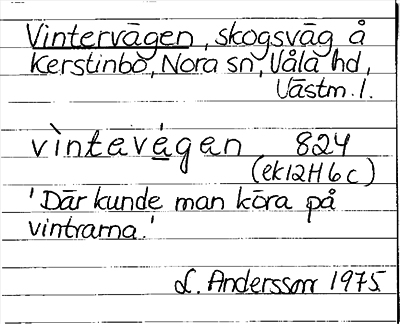 Vintervägen, skogsväg å
Kerstinbo, Nora sn, Våla hd,
Västm. l.
vìntevá̱gen 824
(ek 12H 6c)
'Där kunde man köra på
vintrarna.'
L. Andersson 1975